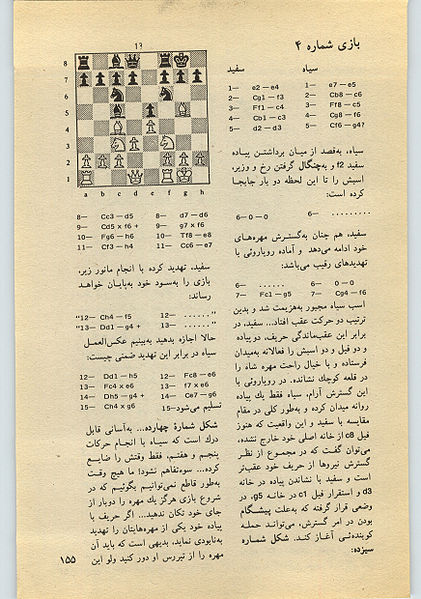 بازی شماره ۴
سفید سیاه
1— e2—e4 1— e7—e5
2— Cg1—f3 2— Cb8—c6
3— Ff1—c4 3— Ff8—c5
4— Cb1—c3 4— Cg8—f6
5— d2—d3 5— Cf6—g4?
سیاه، به‌قصد از میان برداشتن پیاده
سفید f2 و به‌چنگال گرفتن رخ و وزیر،
اسبش را تا این لحظه دو بار جابجا
کرده است:
6—0—0 6— .........
سفید، هم چنان به‌گسترش مهره‌های
خود ادامه می‌دهد و آماده رویاروئی با
تهدیدهای رقیب می‌باشد:
6— ....... 6— 0—0
7— Fc1—g5 7— Cg4—f6
اسب سیاه مجبور به‌هزیمت شد و بدین
ترتیب دو حرکت عقب افتاد... سفید، در
برابر این عقب‌ماندگی حریف، دو پیاده
و دو فیل و دو اسبش را فعالانه به‌میدان
فرستاده و با خیال راحت مهره شاه را
در قلعه کوچك نشانده. در رویاروئی با
این گسترش آرام، سیاه فقط یك پیاده
روانه میدان کرده و به‌طور کلی در مقام
مقایسه با سفید و این واقعیت که هنوز
فیل c8 از خانه اصلی خود خارج نشده،
می‌توان گفت که در مجموع از نظر
گسترش نیروها از حریف خود عقب‌تر
است و سفید با نشاندن پیاده در خانه
d3 و استقرار فیل c1 در خانه g5، در
وضعی قرار گرفته که به‌علت پیشگام
بودن در امر گسترش، می‌تواند حمله
کوبنده‌ئی آغاز کند. شکل شماره
سیزده:
13
8
7
6
5
4
3
2
1
a b c d e f g h
8— Cc3—d5 8— d7—d6
9— Cd5 x f6 + 9— g7 x f6
10— Fg6—h6 10— Tf8—e8
11— Cf3—h4 11— Cc6—e7
سفید، تهدید کرده با انجام مانور زیر،
بازی را به‌سود خود به‌پایان خواهد
رساند:
"12— Ch4—f5 12— ......"
"13— Dd1—g4 + 13— ......"
حالا اجازه بدهید به‌بینیم عکس‌العمل
سیاه در برابر این تهدید ضمنی چیست:
12— Dd1—h5 12— Fc8—e6
13— Fc4 x e6 13— f7 x e6
14— Dh5—g4 + 14— Ce7—g6
15— Ch4 x g6 15—تسلیم می‌شود
شکل شمارهٔ چهارده... به‌آسانی قابل
درك است که سیاه با انجام حرکات
پنجم و هفتم، فقط وقتش را ضایع
کرده... سوءتفاهم نشود؛ ما هیچ وقت
به‌طور قاطع نمی‌توانیم بگوئیم که در
شروع بازی هرگز یك مهره را دوبار از
جای خود تکان ندهید... اگر حریف با
پیاده خود یکی از مهره‌هایتان را تهدید
به‌نابودی نماید، بدیهی است که باید آن
مهره را از تیررس او دور کنید ولو این
۱۵۵